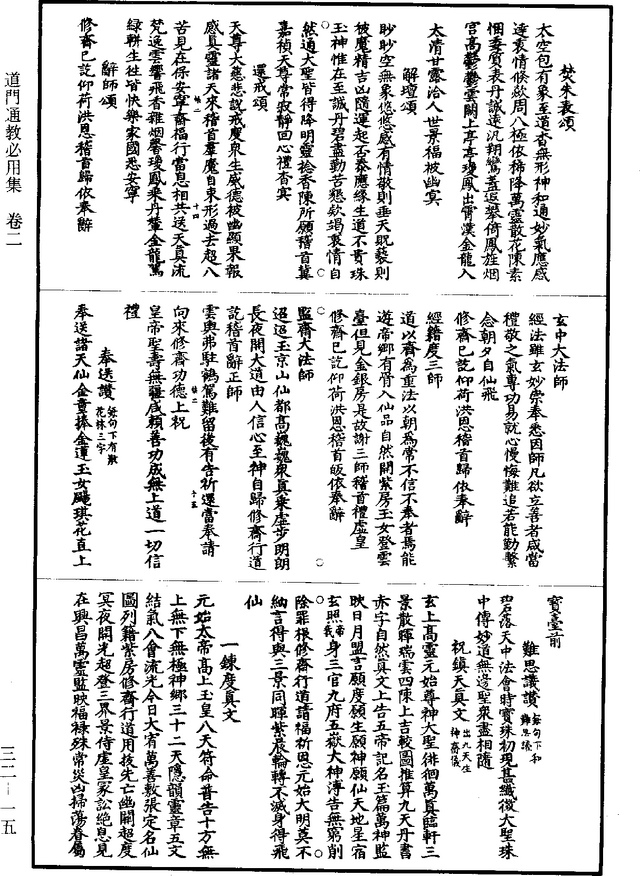 道門通教必用集 卷二
三二—一五
焚朱表頌
太空包有象至道杳無形神和通妙氣應感
達衷情倏欻周八極依稀降萬靈散花陳素
悃秉質表丹誠遠汎翔鸞蓋返攀倚鳳旌烟
宮高鬱鬱雲闕上亭亭瓊鳳出霄漢金龍入
太清甘露洽人世景福被幽冥
解壇頌
眇眇空無象悠悠感有情敬則垂天貺褻則
被魔精吉凶隨運起否泰應緣生道不貴珠
玉神惟在至誠丹碧盡勤苦懇欵竭衷情自
然通大聖皆得降明靈捻香陳所願稽首冀
嘉禎天尊常寂靜回心禮杳冥
還戒頌
天尊大慈悲說戒度衆生威德被幽顯果報
感真靈諸天來稽首羣魔自束形過去超八
苦見在保安寧齋福行當息相共送天真流
梵逸雲響飛香雜烟馨瓊鳳乘丹輦金龍駕
綠輧生徃皆快樂家國悉安寧
辭師頌
修齋已訖仰荷洪恩稽首歸依奉辭
玄中大法師
經法雖玄妙崇奉悉因師凡欲立善者咸當
禮敬之氣專功易就心慢悔難追若能勤繫
念朝夕自仙飛
修齋已訖仰荷洪恩稽首歸依奉辭
經籍度三師
道以齋為重法以朝為常不信不奉者焉能
遊帝鄉有骨入仙品自然開紫房玉女登雲
臺但見金銀房是故謝三師稽首禮虛皇
修齋已訖仰荷洪恩稽首皈依奉辭
監齋大法師
迢迢玉京山仙都高巍巍衆真乘虛步明朗
長夜開大道由人信心至神自歸修齋行道
訖稽首辭正師
雲輿弗駐鶴駕難留後有告祈還當奉請
向來修齋功德上祝
皇帝聖壽無疆咸賴善功成無上道一切信
禮
奉送讚 每句下有散花林三字
奉送諸天仙金童捧金蓮玉女飈琪花直上
寶臺前
難思議讚 每句下和難思議
碧落天中法會時寶珠初現甚纖微大聖珠
中傳妙道無邊聖衆盡相隨
祝鎮天真文 出九天生神齋儀
玄上高靈元始尊神大聖徘徊萬真臨軒三
景散暉瑞雲四陳上吉較圖推算九天丹書
赤字自然真文上告五帝記名玉篇萬神監
映日月盟言願度願生願神願仙天地星宿
玄照帝我身三官九府五嶽大神溥告無窮削
除罪根修齋行道請福祈恩元始大明莫不
納言得與三景同暉紫晨輪轉不滅身得飛
仙
一鍊度真文
元始太帝高上玉皇八天符命普告十方無
上無下無極神鄉三十二天隱韻靈章五文
結氣八會流光今日大宥萬善敷張定名仙
圖列籍紫房修齋行道用拔先亡幽開超度
冥夜開光超登三界景侍虛皇冢訟絕息見
在興昌萬靈監映福祿殊常災凶掃蕩眷屬